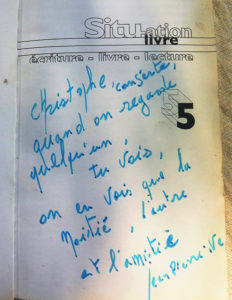 Situ-ation
livre
écriture - livre - lecture
Christophe,
quand on regarde
quelqu'un,
tu vois,
on en vois que la
moitié, l'autre
et l'amitié
Jean Pierre
5